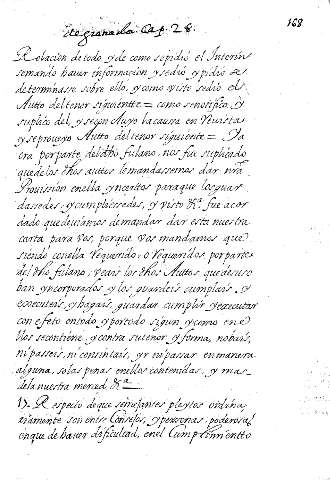 de granada. Cap. 28.
168
Relacion de todo, y de como se pidió el Interin
semando hauer informacion, y se dió y pidio se
determinasse sobre ello, y como visto se dió el
Autto del tenor siguientte = como se notifico, y
suplico del, y segun Auyo la causa en Reuistas
y se proueyo Autto del tenor siguiente = Ya
ora por parte del dho fulano, nos fue suplicado
que de los dhos auttos le mandassemos dar nrâ
Prouission en ella ynsertos para que los guar
dassedes, y cumpliessedes, y visto &ª. fue acor
dado que deuiamos demandar dar esta nuestra
carta para Vos, porque Vos mandamos que
siendo con ella Requerido, o Requeridos por parte
del dho fulano, veais los dhos Auttos, que de uso
ban yncorporados, y los guardeis cumplais, y
executeis, y hagais, guardar cumplir, y executar
con efeto en todo, y por todo segun, y como en e
llos se contiene, y contra su tenor, y forma, no bais,
ni passeis, ni consintais, yr ni passar en manera
alguna, so las penas en ellos contenidas, y mas
de la nuestra merced &ª
17. Respecto de que semejantes pleytos ordina,
riamente son entre Consejos, y personas poderosas,
en que de hauer dificultad, en el Cumplimientto